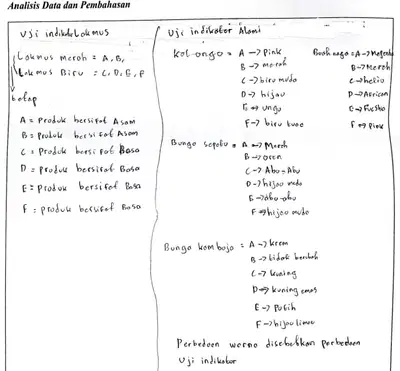 Analisis Data dan Pembahasan
Uji indikator Lakmus
Lakmus merah = A, B,
Lakmus Biru = C, D, E, F
tetap
A = Produk bersifat Asam
B = Produk bersifat Asam
C = Produk bersifat Basa
D = Produk bersifat Basa
E = Produk bersifat Basa
F = Produk bersifat Basa
Uji indikator Alami
Kol ungo = A → Pink
B → merah
C → biru muda
D → hijau
E → ungu
F → biru tuao
Buah naga = A → Magenta
B → Merah
C → helio
D → African
E → Fuschia
F → Pink
Bunga sepatu = A → Merah
B → oren
C → Abu-Abu
D → hijau muda
E → abu-abu
F → hijau muda
Bunga kamboja = A → krem
B → tidak berubah
C → kuning
D → kuning emas
E → Putih
F → hijau limau
Perbedaan warna disebabkan perbedaan
Uji indikator